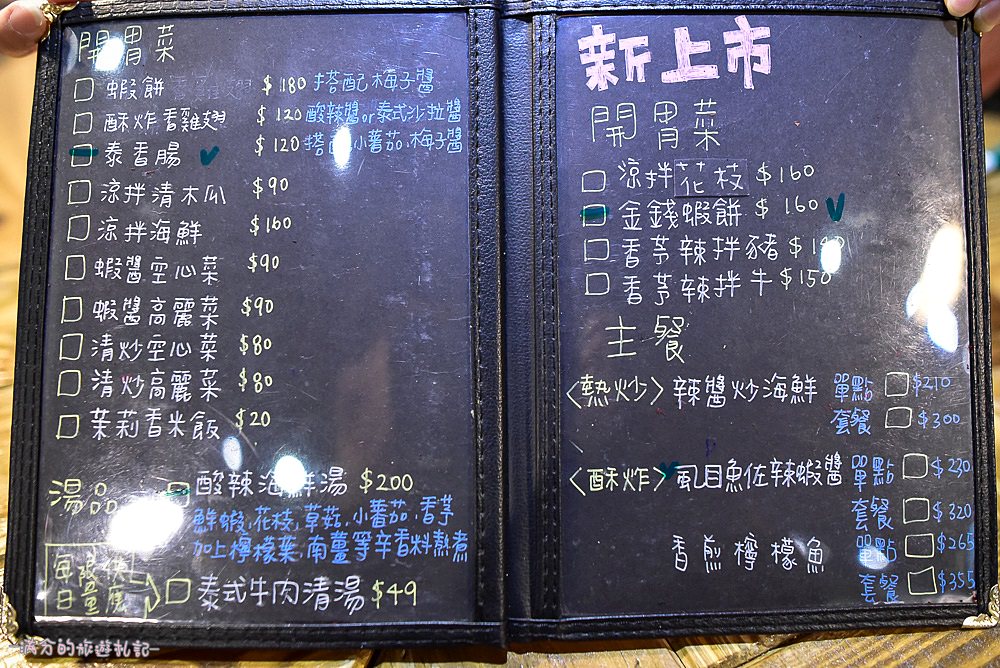 開胃菜
蝦餅 $180 搭配梅子醬
酥炸香雞翅 $120 酸辣醬or泰式沙拉醬
泰香腸 $120 搭配小蕃茄.梅子醬
涼拌清木瓜 $90
涼拌海鮮 $160
蝦醬空心菜 $90
蝦醬高麗菜 $90
清炒空心菜 $80
清炒高麗菜 $80
茉莉香米飯 $20
湯品 酸辣海鮮湯 $200
鮮蝦,花枝,草菇,小蕃茄,香芧
加上檸檬葉,南薑等辛香料熱煮
每日
泰式牛肉清湯 $49
新上市
開胃菜
涼拌花枝 $160
金錢蝦餅 $160
香芧辣拌豬
香芧辣拌牛 $150
主餐
<熱炒> 辣醬炒海鮮 單點 $210
套餐 $300
<酥炸> 虱目魚佐辣蝦醬 單點 $230
套餐 $320
香煎檸檬魚 單點 $265
套餐 $355
滿分的旅遊札記